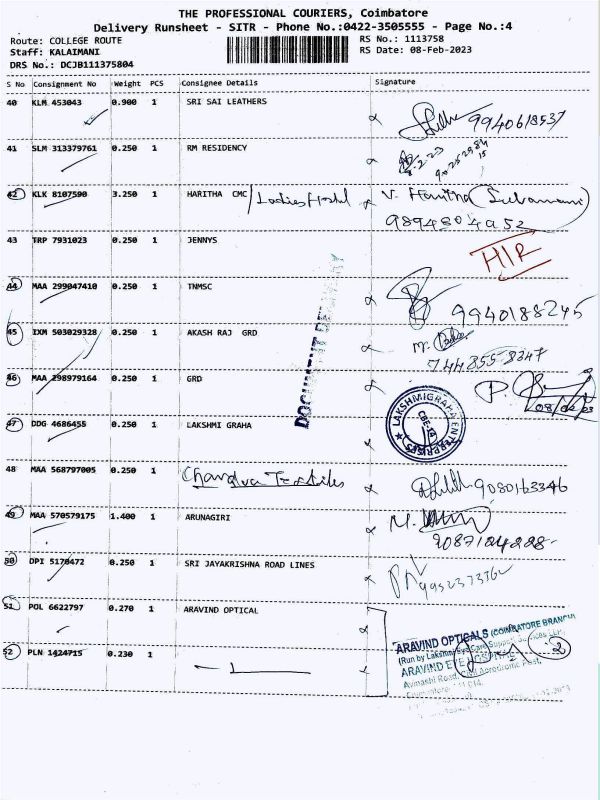 THE PROFESSIONAL COURIERS, Coimbatore
Delivery Runsheet - SITR - Phone No.:0422-3505555 - Page No.:4
Route: COLLEGE ROUTE RS No.: 1113758
Staff: KALAIMANI RS Date: 08-Feb-2023
DRS No.: DCJB111375804
S No Consignment No Weight PCS Consignee Details Signature
40 KLM 453043 0.900 1 SRI SAI LEATHERS 9940618537
41 SLM 313379761 0.250 1 RM RESIDENCY
42 KLK 8107590 3.250 1 HARITHA CMC / Ladies Hostel V. Haritha
9894804952
43 TRP 7931023 0.250 1 JENNYS HIR
44 MAA 299047410 0.250 1 TNMSC 9940188245
DOCUMENT DELIVERY
45 IXM 503029328 0.250 1 AKASH RAJ GRD
7448558347
46 MAA 298979164 0.250 1 GRD
08/02/23
47 DDG 4686455 0.250 1 LAKSHMI GRAHA LAKSHMIGRAHA ENTERPRISES CBE-14
48 MAA 568797005 0.250 1 Chandra Textiles 9080163346
49 MAA 570579175 1.400 1 ARUNAGIRI
9087104228
50 DPI 5170472 0.250 1 SRI JAYAKRISHNA ROAD LINES
51 POL 6622797 0.270 1 ARAVIND OPTICAL
ARAVIND OPTICALS (COIMBATORE BRANCH)
52 PLN 1424715 0.230 1 2
ARAVIND EYE HOSPITAL
Avinashi Road, Civil Aerodrome Post,